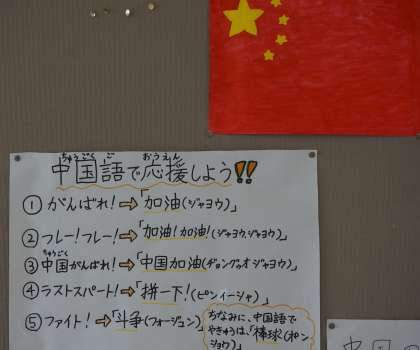 ちゅうごくご おうえん
中国語で応援しよう!!
① がんばれ! ➡ 「加油(ジャヨウ)」
② フレー!フレー! ➡ 「加油!加油!(ジャヨウ、ジャヨウ)」
ちゅうごく
③ 中国がんばれ! ➡ 「中国加油(ヂョングゥオ ジャヨウ)」
④ ラストスパート! ➡ 「拼一下!(ピンイーシャ)」
⑤ ファイト! ➡ 「斗争(フォージュン)」
ちなみに、中国語で
やきゅうは、「棒球(ボン
ジョウ)」
中国